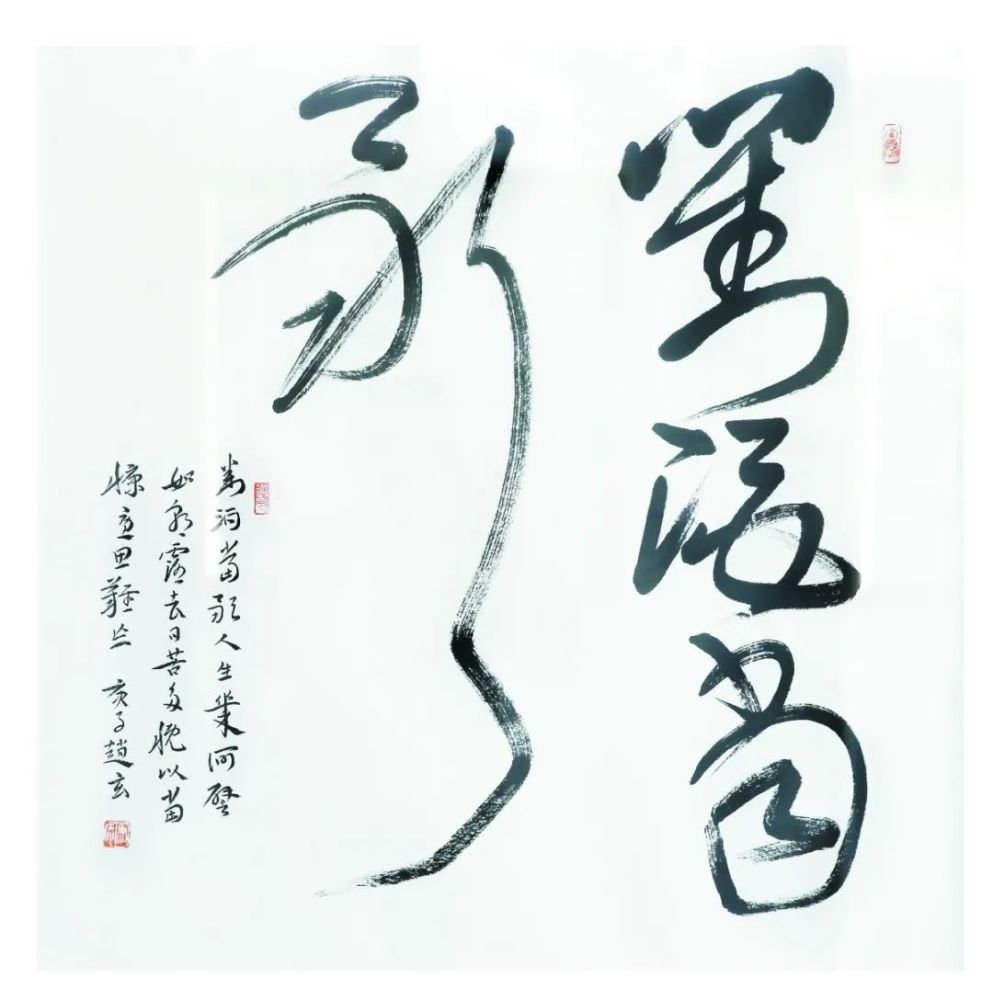 對酒當
歌
對酒當歌人生幾何譬
如朝露去日苦多慨以當
慷憂思難忘 庚子趙玄